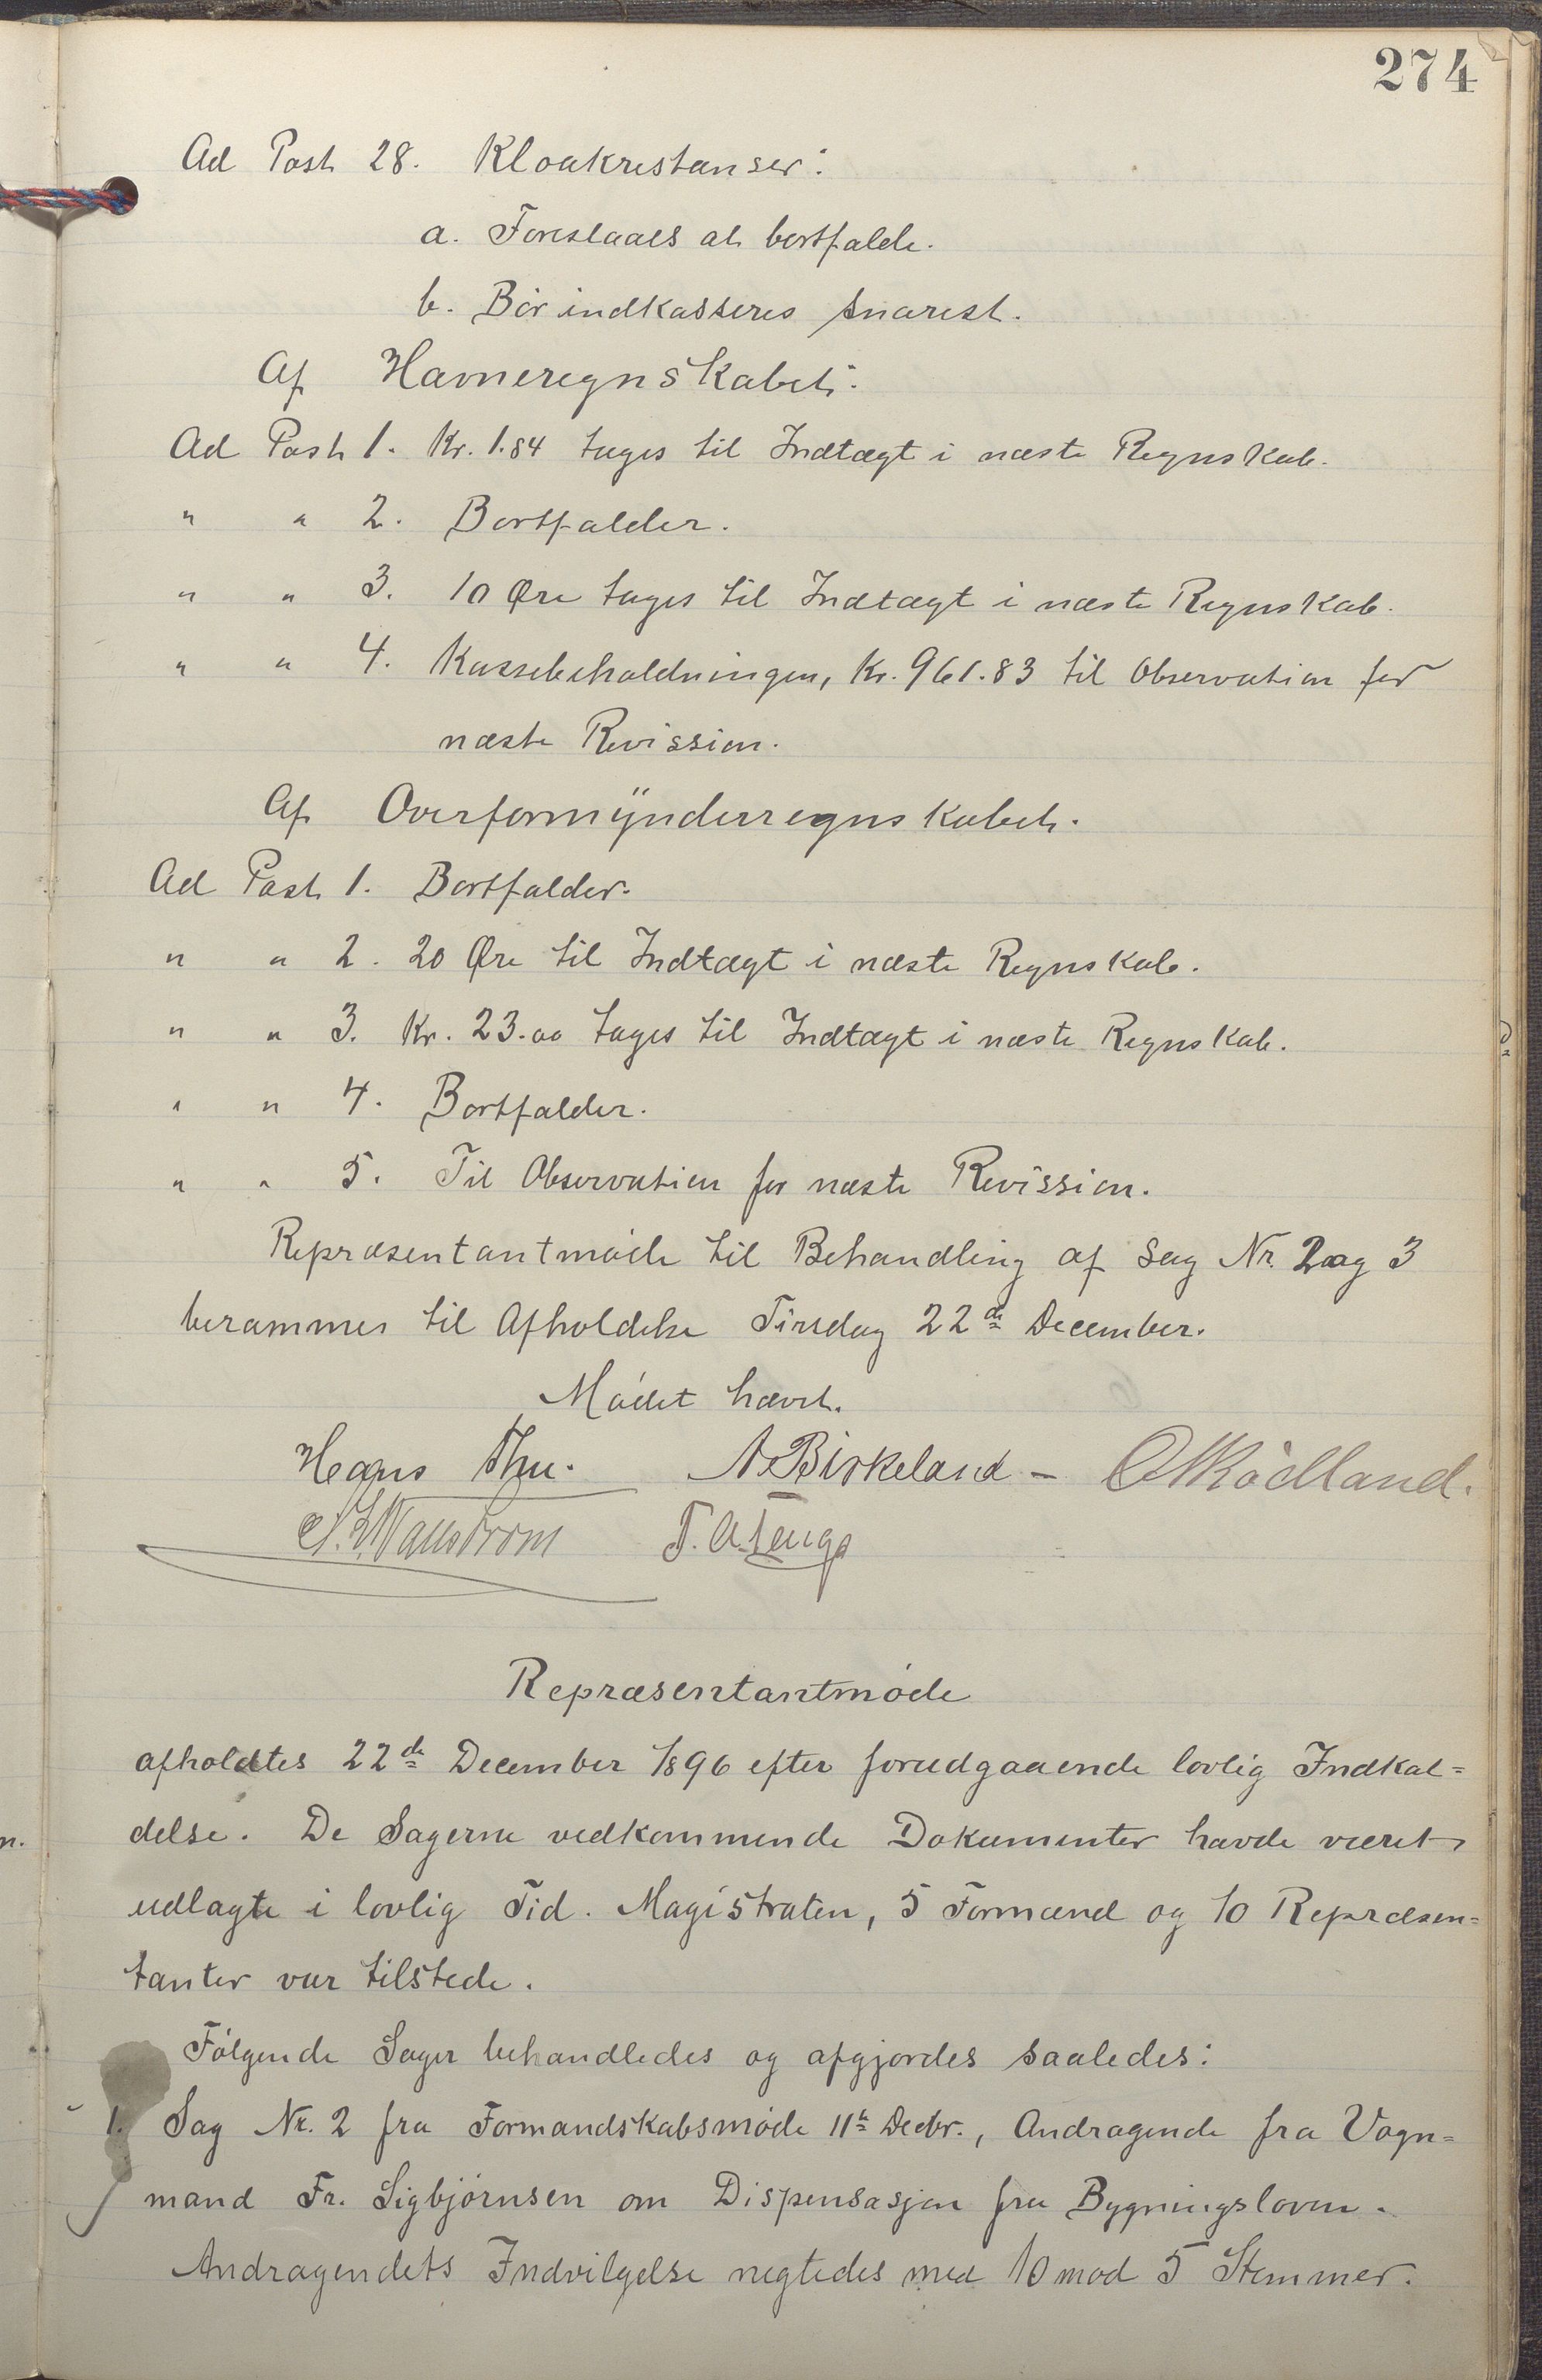 274
Ad Post 28. Kloakrestanser:
a. Foreslaaes at bortfalde.
b. Bør indkasseres snarest.
Af Havneregnskabet:
Ad Post 1. Kr. 1.84 tages til Indtægt i næste Regnskab.
" " 2. Bortfalder.
" " 3. 10 Øre tages til Indtægt i næste Regnskab.
" " 4. Kassebeholdningen, Kr. 961.83 til Observation for
næste Revission.
Af Overformynderregnskabet.
Ad Post 1. Bortfalder.
" " 2. 20 Øre til Indtægt i næste Regnskab.
" " 3. Kr. 23.00 tages til Indtægt i næste Regnskab.
" " 4. Bortfalder.
" " 5. Til Observation for næste Revission.
Repræsentantmøde til Behandling af Sag Nr. 2 og 3
berammes til Afholdelse Tirsdag 22de December.
Mødet hævet.
Hans Thu. A. Birkeland - O Rødland.
T. A. Lenge
Repræsentantmøde
afholdtes 22de December 1896 efter forudgaaende lovlig Indkal=
delse. De Sagerne vedkommende Dokumenter havde været
udlagte i lovlig Tid. Magistraten, 5 Formænd og 10 Repræsen=
tanter var tilstede.
Følgende Sager behandledes og afgjordes saaledes:
1. Sag Nr. 2 fra Formandskabsmøde 11te Decbr., Andragende fra Vogn=
mand Fr. Sigbjørnsen om Dispensasjon fra Bygningsloven.
Andragendets Indvilgelse negtedes med 10 mod 5 Stemmer.